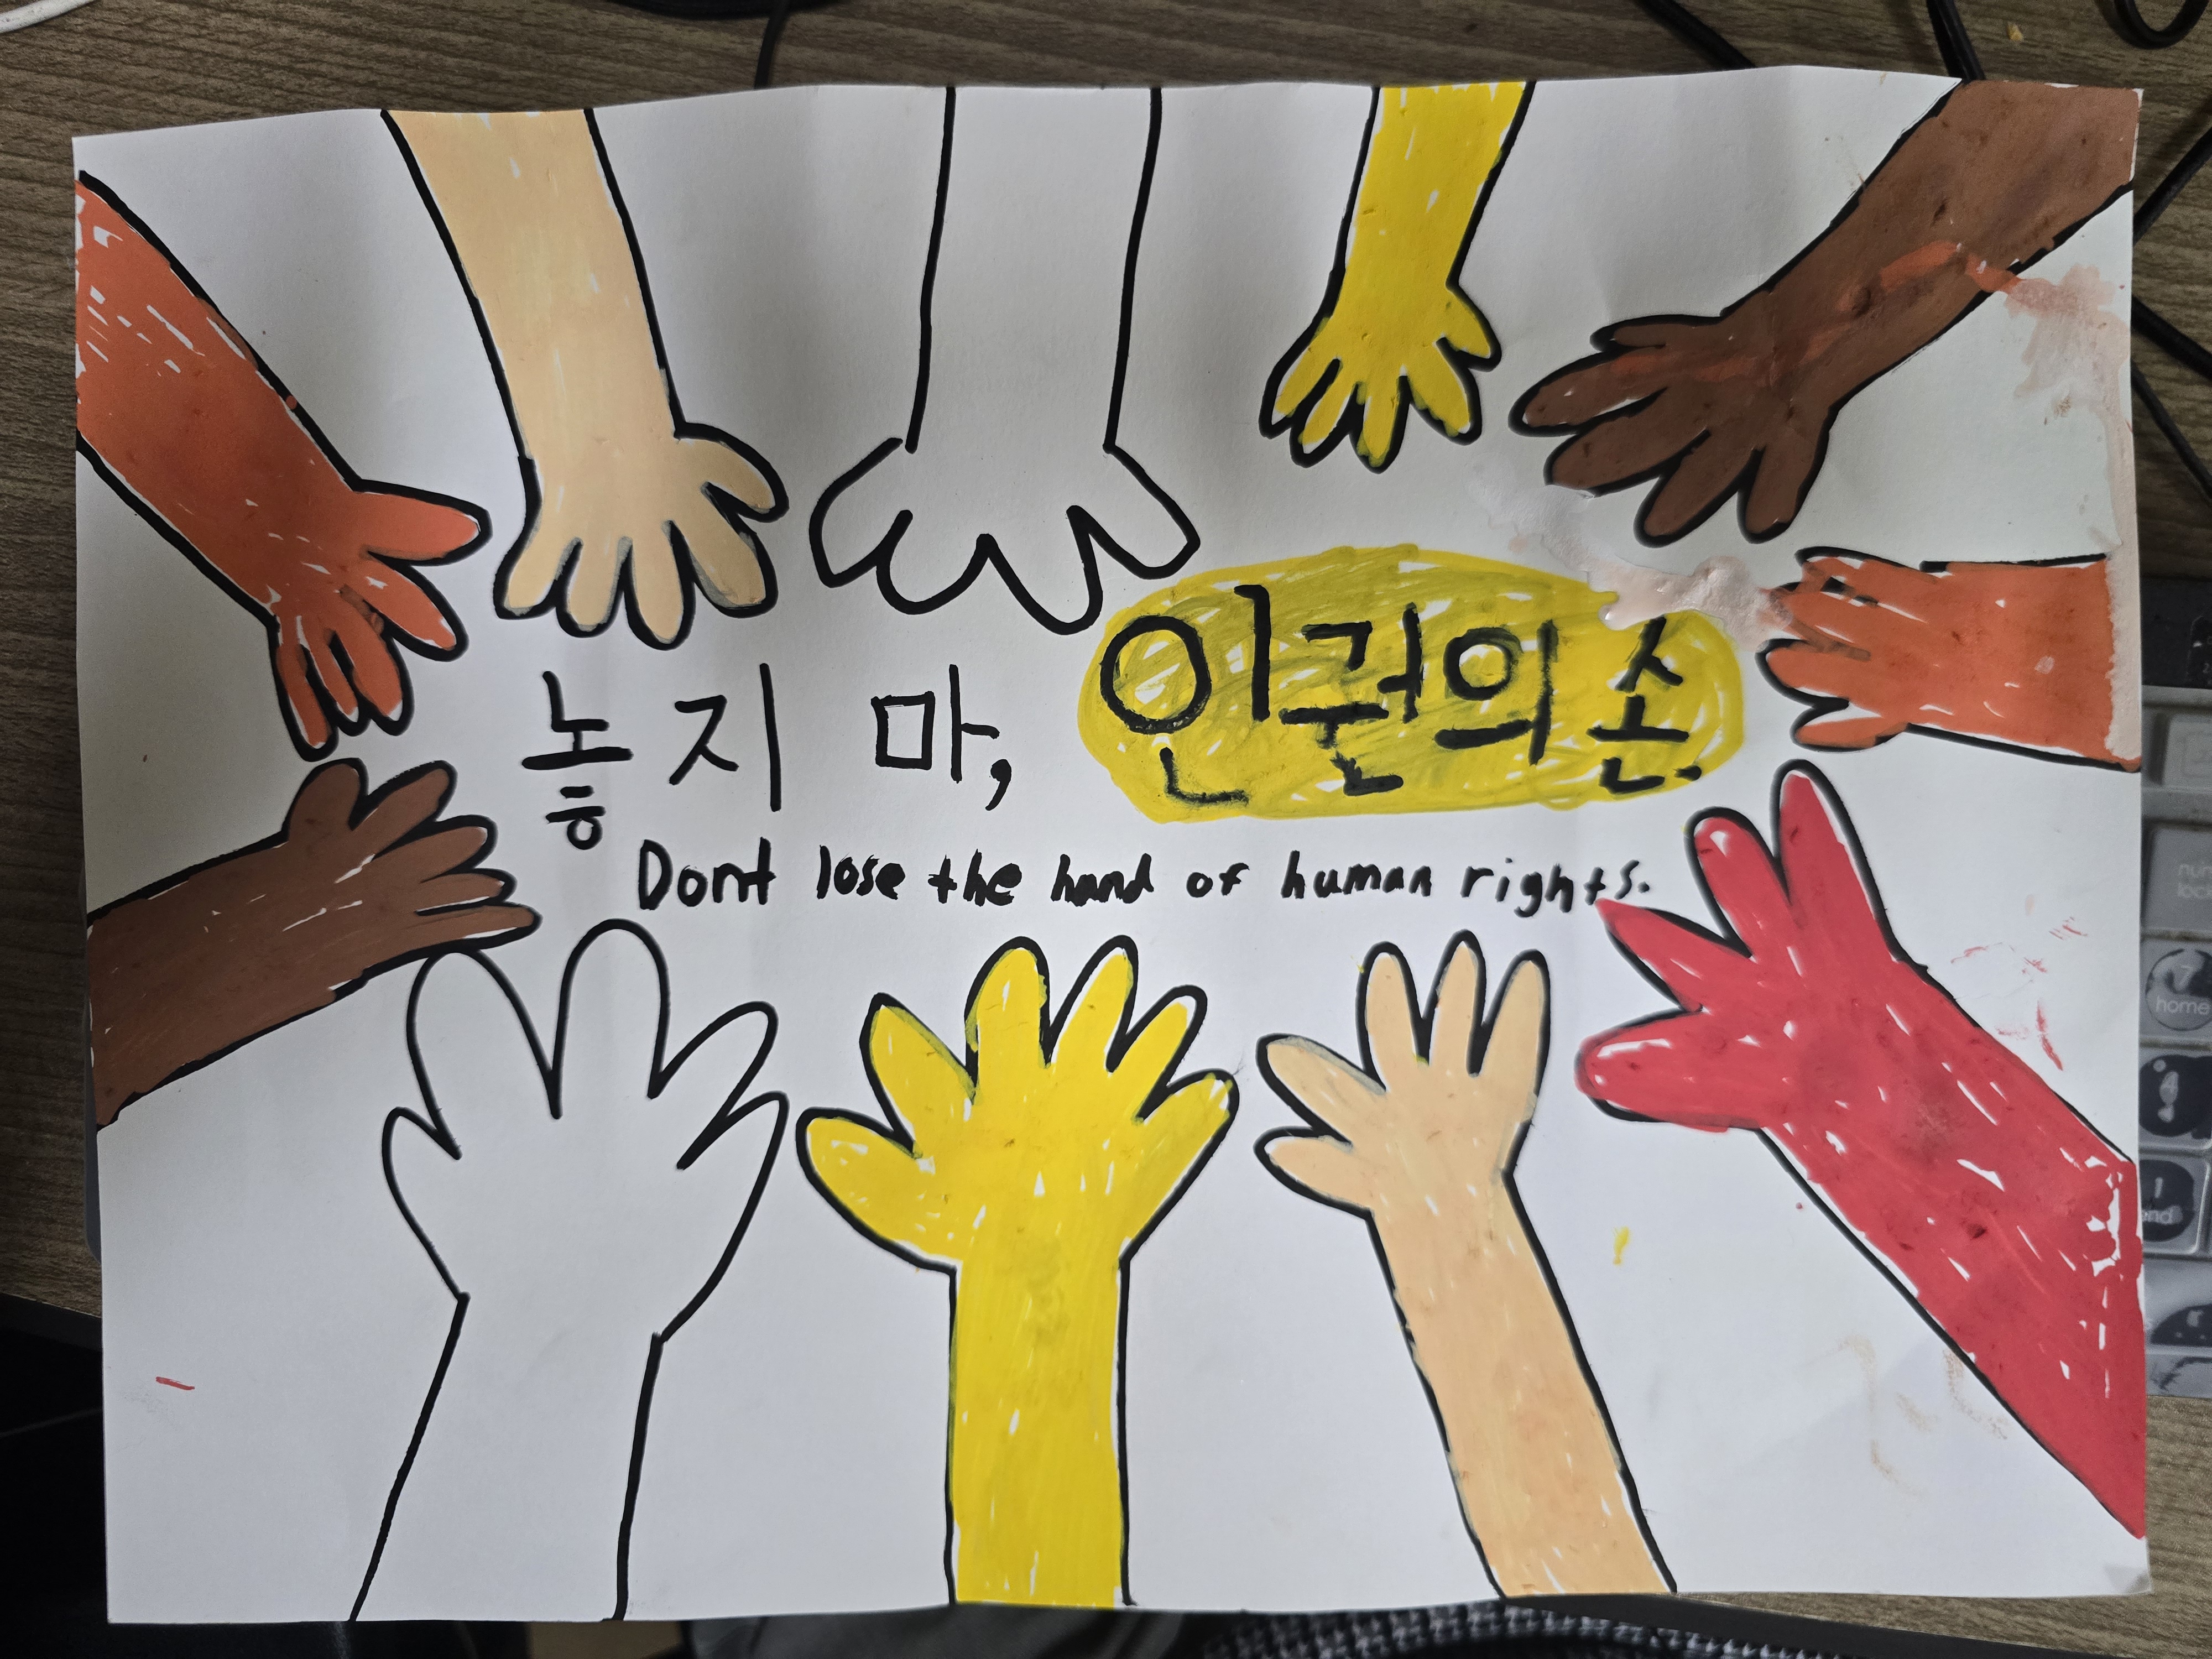 놓지 마, 인권의 손.
Dont lose the hand of human rights.
num
loc
7
home
4
1
end